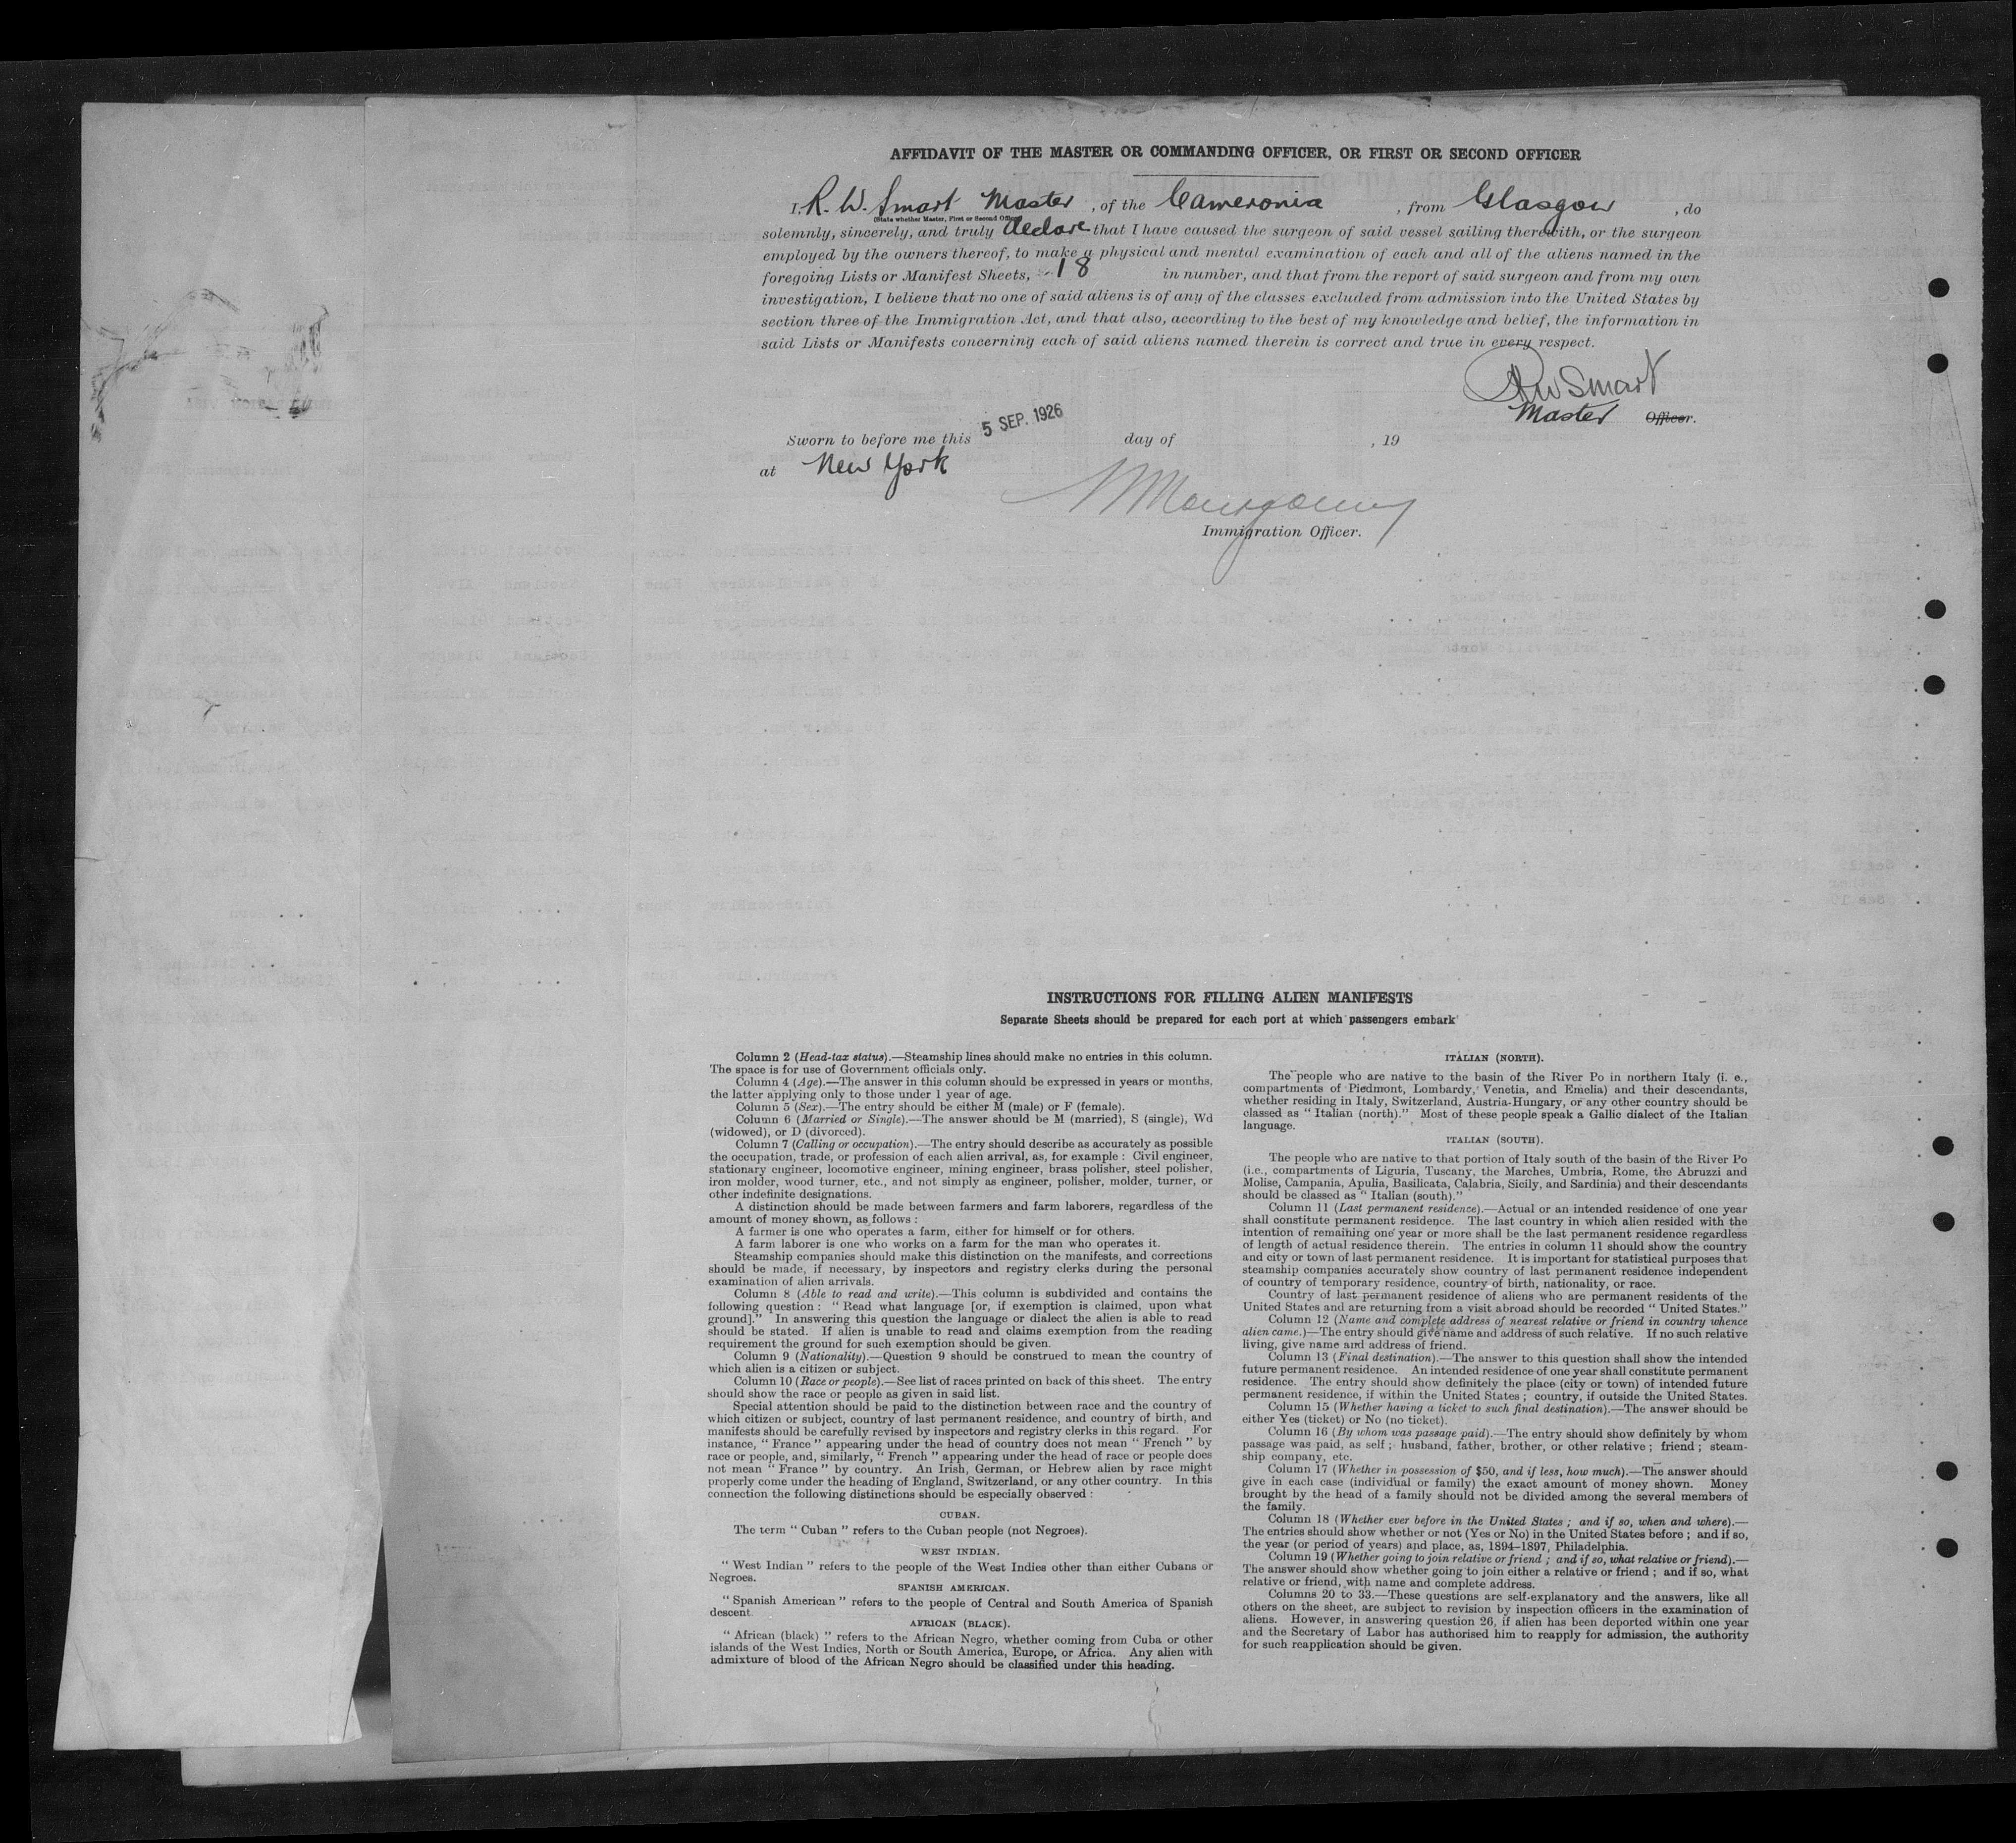 AFFIDAVIT OF THE MASTER OR COMMANDING OFFICER, OR FIRST OR SECOND OFFICER
I, R. W. Smart Master, of the Cameronia, from Glasgow, do
(State whether Master, First or Second Officer)
solemnly, sincerely, and truly declare that I have caused the surgeon of said vessel sailing therewith, or the surgeon
employed by the owners thereof, to make a physical and mental examination of each and all of the aliens named in the
foregoing Lists or Manifest Sheets, 18 in number, and that from the report of said surgeon and from my own
investigation, I believe that no one of said aliens is of any of the classes excluded from admission into the United States by
section three of the Immigration Act, and that also, according to the best of my knowledge and belief, the information in
said Lists or Manifests concerning each of said aliens named therein is correct and true in every respect.
RW Smart
Master Officer.
5 SEP. 1926
Sworn to before me this day of , 19
at New York
Montgomery
Immigration Officer.
INSTRUCTIONS FOR FILLING ALIEN MANIFESTS
Separate Sheets should be prepared for each port at which passengers embark
Column 2 (Head-tax status).—Steamship lines should make no entries in this column.
The space is for use of Government officials only.
Column 4 (Age).—The answer in this column should be expressed in years or months,
the latter applying only to those under 1 year of age.
Column 5 (Sex).—The entry should be either M (male) or F (female).
Column 6 (Married or Single).—The answer should be M (married), S (single), Wd
(widowed), or D (divorced).
Column 7 (Calling or occupation).—The entry should describe as accurately as possible
the occupation, trade, or profession of each alien arrival, as, for example : Civil engineer,
stationary engineer, locomotive engineer, mining engineer, brass polisher, steel polisher,
iron molder, wood turner, etc., and not simply as engineer, polisher, molder, turner, or
other indefinite designations.
A distinction should be made between farmers and farm laborers, regardless of the
amount of money shown, as follows :
A farmer is one who operates a farm, either for himself or for others.
A farm laborer is one who works on a farm for the man who operates it.
Steamship companies should make this distinction on the manifests, and corrections
should be made, if necessary, by inspectors and registry clerks during the personal
examination of alien arrivals.
Column 8 (Able to read and write).—This column is subdivided and contains the
following question : " Read what language [or, if exemption is claimed, upon what
ground]." In answering this question the language or dialect the alien is able to read
should be stated. If alien is unable to read and claims exemption from the reading
requirement the ground for such exemption should be given.
Column 9 (Nationality).—Question 9 should be construed to mean the country of
which alien is a citizen or subject.
Column 10 (Race or people).—See list of races printed on back of this sheet. The entry
should show the race or people as given in said list.
Special attention should be paid to the distinction between race and the country of
which citizen or subject, country of last permanent residence, and country of birth, and
manifests should be carefully revised by inspectors and registry clerks in this regard. For
instance, " France " appearing under the head of country does not mean " French " by
race or people, and, similarly, " French " appearing under the head of race or people does
not mean " France " by country. An Irish, German, or Hebrew alien by race might
properly come under the heading of England, Switzerland, or any other country. In this
connection the following distinctions should be especially observed :
CUBAN.
The term " Cuban " refers to the Cuban people (not Negroes).
WEST INDIAN.
" West Indian " refers to the people of the West Indies other than either Cubans or
Negroes.
SPANISH AMERICAN.
" Spanish American " refers to the people of Central and South America of Spanish
descent.
AFRICAN (BLACK).
" African (black) " refers to the African Negro, whether coming from Cuba or other
islands of the West Indies, North or South America, Europe, or Africa. Any alien with
admixture of blood of the African Negro should be classified under this heading.
ITALIAN (NORTH).
The people who are native to the basin of the River Po in northern Italy (i. e.,
compartments of Piedmont, Lombardy, Venetia, and Emelia) and their descendants,
whether residing in Italy, Switzerland, Austria-Hungary, or any other country should be
classed as " Italian (north)." Most of these people speak a Gallic dialect of the Italian
language.
ITALIAN (SOUTH).
The people who are native to that portion of Italy south of the basin of the River Po
(i.e., compartments of Liguria, Tuscany, the Marches, Umbria, Rome, the Abruzzi and
Molise, Campania, Apulia, Basilicata, Calabria, Sicily, and Sardinia) and their descendants
should be classed as " Italian (south)."
Column 11 (Last permanent residence).—Actual or an intended residence of one year
shall constitute permanent residence. The last country in which alien resided with the
intention of remaining one year or more shall be the last permanent residence regardless
of length of actual residence therein. The entries in column 11 should show the country
and city or town of last permanent residence. It is important for statistical purposes that
steamship companies accurately show country of last permanent residence independent
of country of temporary residence, country of birth, nationality, or race.
Country of last permanent residence of aliens who are permanent residents of the
United States and are returning from a visit abroad should be recorded " United States."
Column 12 (Name and complete address of nearest relative or friend in country whence
alien came.)—The entry should give name and address of such relative. If no such relative
living, give name and address of friend.
Column 13 (Final destination).—The answer to this question shall show the intended
future permanent residence. An intended residence of one year shall constitute permanent
residence. The entry should show definitely the place (city or town) of intended future
permanent residence, if within the United States ; country, if outside the United States.
Column 15 (Whether having a ticket to such final destination).—The answer should be
either Yes (ticket) or No (no ticket).
Column 16 (By whom was passage paid).—The entry should show definitely by whom
passage was paid, as self ; husband, father, brother, or other relative ; friend ; steam-
ship company, etc.
Column 17 (Whether in possession of $50, and if less, how much).—The answer should
give in each case (individual or family) the exact amount of money shown. Money
brought by the head of a family should not be divided among the several members of
the family.
Column 18 (Whether ever before in the United States ; and if so, when and where).—
The entries should show whether or not (Yes or No) in the United States before ; and if so,
the year (or period of years) and place, as, 1894-1897, Philadelphia.
Column 19 (Whether going to join relative or friend ; and if so, what relative or friend).—
The answer should show whether going to join either a relative or friend ; and if so, what
relative or friend, with name and complete address.
Columns 20 to 33.—These questions are self-explanatory and the answers, like all
others on the sheet, are subject to revision by inspection officers in the examination of
aliens. However, in answering question 26, if alien has been deported within one year
and the Secretary of Labor has authorised him to reapply for admission, the authority
for such reapplication should be given.